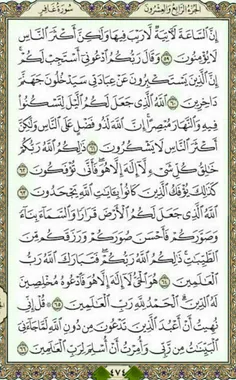 الجزء الرابع والعشرون سورة غافر
إِنَّ السَّاعَةَ لَآتِيَةٌ لَّا رَيْبَ فِيهَا وَلَٰكِنَّ أَكْثَرَ النَّاسِ
لَا يُؤْمِنُونَ ٥٩ وَقَالَ رَبُّكُمُ ادْعُونِي أَسْتَجِبْ لَكُمْ
إِنَّ الَّذِينَ يَسْتَكْبِرُونَ عَنْ عِبَادَتِي سَيَدْخُلُونَ جَهَنَّمَ
دَاخِرِينَ ٦٠ اللَّهُ الَّذِي جَعَلَ لَكُمُ اللَّيْلَ لِتَسْكُنُوا
فِيهِ وَالنَّهَارَ مُبْصِرًا إِنَّ اللَّهَ لَذُو فَضْلٍ عَلَى النَّاسِ وَلَٰكِنَّ
أَكْثَرَ النَّاسِ لَا يَشْكُرُونَ ٦١ ذَٰلِكُمُ اللَّهُ رَبُّكُمْ
خَالِقُ كُلِّ شَيْءٍ لَّا إِلَٰهَ إِلَّا هُوَ فَأَنَّىٰ تُؤْفَكُونَ ٦٢
كَذَٰلِكَ يُؤْفَكُ الَّذِينَ كَانُوا بِآيَاتِ اللَّهِ يَجْحَدُونَ ٦٣
اللَّهُ الَّذِي جَعَلَ لَكُمُ الْأَرْضَ قَرَارًا وَالسَّمَاءَ بِنَاءً
وَصَوَّرَكُمْ فَأَحْسَنَ صُوَرَكُمْ وَرَزَقَكُم مِّنَ
الطَّيِّبَاتِ ذَٰلِكُمُ اللَّهُ رَبُّكُمْ فَتَبَارَكَ اللَّهُ رَبُّ
الْعَالَمِينَ ٦٤ هُوَ الْحَيُّ لَا إِلَٰهَ إِلَّا هُوَ فَادْعُوهُ مُخْلِصِينَ
لَهُ الدِّينَ الْحَمْدُ لِلَّهِ رَبِّ الْعَالَمِينَ ٦٥ قُلْ إِنِّي
نُهِيتُ أَنْ أَعْبُدَ الَّذِينَ تَدْعُونَ مِن دُونِ اللَّهِ لَمَّا جَاءَنِيَ
الْبَيِّنَاتُ مِن رَّبِّي وَأُمِرْتُ أَنْ أُسْلِمَ لِرَبِّ الْعَالَمِينَ ٦٦
٤٧٤